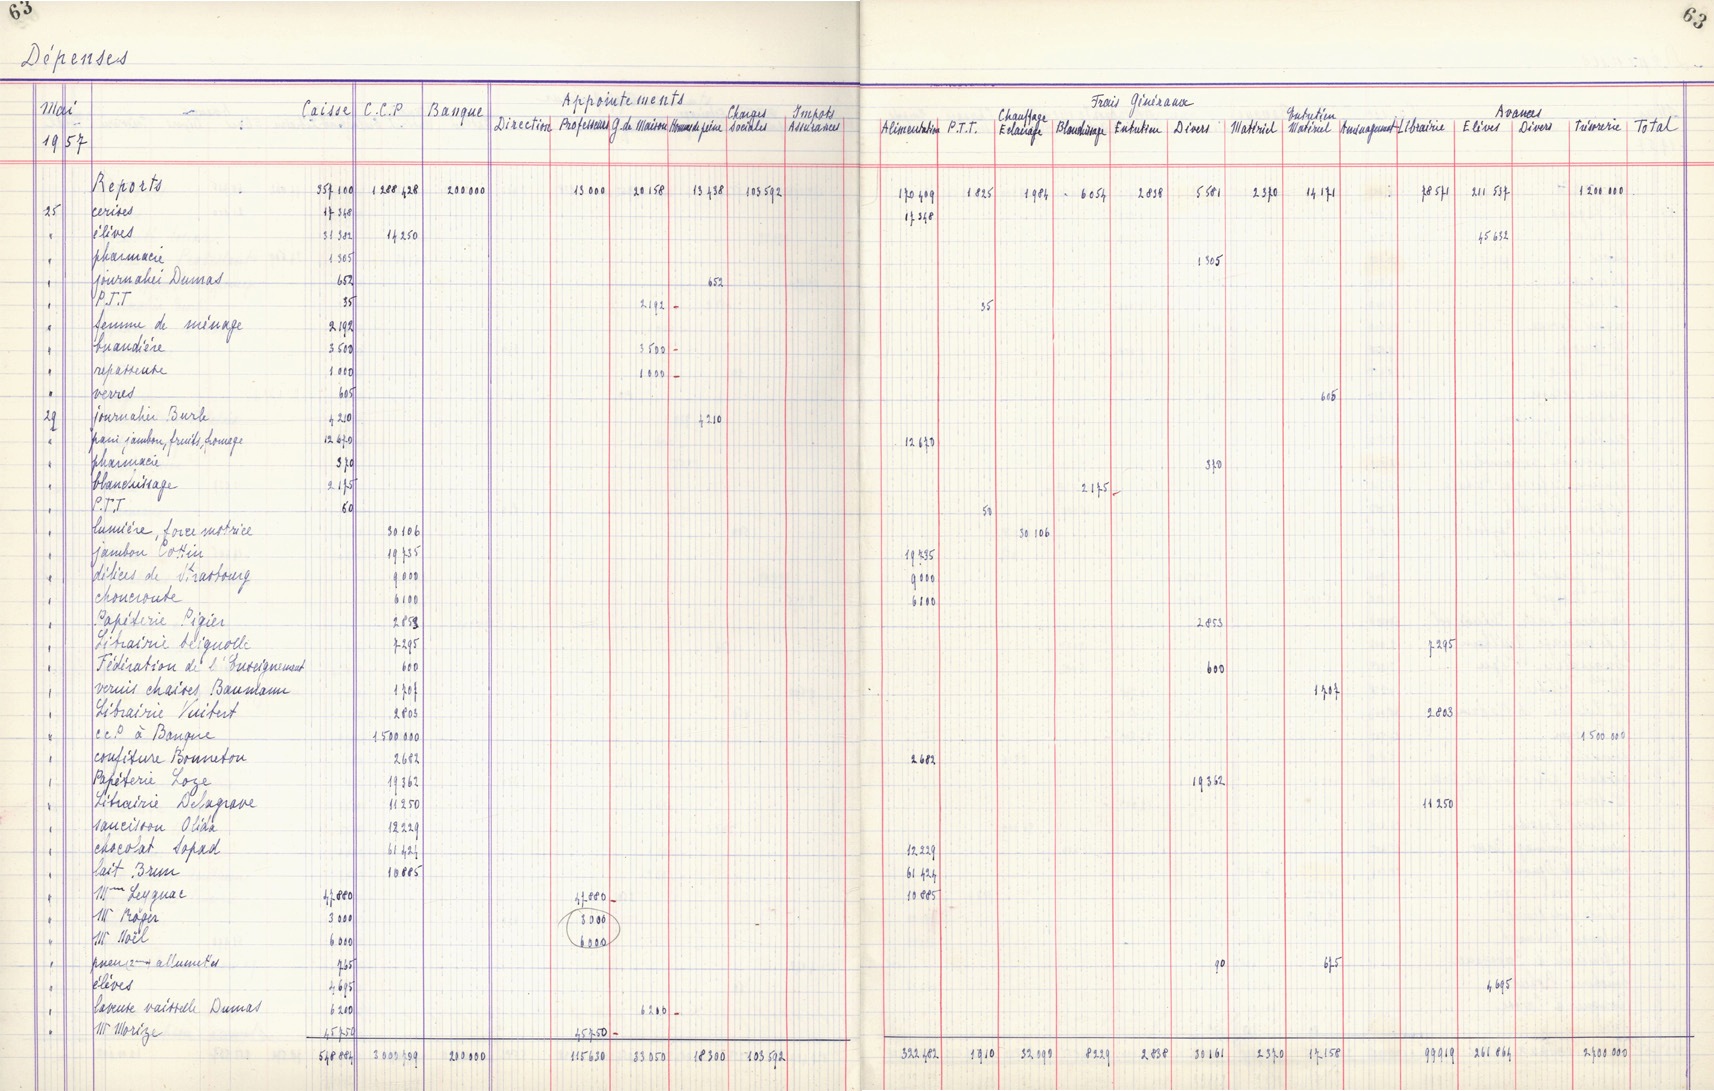 63
63
Dépenses
Mai 1957
Caisse C.C.P Banque
Appointements
Direction Professeurs G. de Maison Hommes de peine Charges Sociales Impots Assurances
Frais Généraux
Alimentation P.T.T. Chauffage Eclairage Blanchissage Entretien Divers Matériel Entretien Matériel Aménagement
Avances
Librairie Elèves Divers Trésorerie Total
Reports 357 100 1 288 428 200 000 13 000 20 158 13 438 103 592 170 409 1 825 1 984 6 054 2 838 5 581 2 370 14 171 78 571 211 537 1 200 000
25 cerises 17 348 17 348
" élèves 31 382 14 250 45 632
" pharmacie 1 305 1 305
" journalier Dumas 652 652
" P.T.T 35 35
" femme de ménage 2 192 2 192 -
" buandière 3 500 3 500 -
" repasseuse 1 000 1 000 -
" verres 605 605
29 journalier Burle 4 210 4 210
" pain, jambon, fruits, fromage 12 670 12 670
" pharmacie 370 370
" blanchissage 2 175 2 175 -
" P.T.T 50 50
" lumière, force motrice 30 106 30 106
" jambon Cottin 19 735 19 735
" délices de Strasbourg 9 000 9 000
" choucroute 6 100 6 100
" Papéterie Pigier 2 853 2 853
" Librairie Beignolle 7 295 7 295
" Fédération de l'Enseignement 600 600
" vernis chaises Baumann 1 707 1 707
" Librairie Vuibert 2 803 2 803
" C.C.P à Banque 1 500 000 1 500 000
" confiture Bonneton 2 682 2 682
" Papéterie Loze 19 362 19 362
" Librairie Delagrave 11 250 11 250
" saucisson Olida 12 229 12 229
" chocolat Sopad 61 424 61 424
" lait Brun 10 885 10 885
" Mme Leygnac 47 880 47 880 -
" Mr Röger 3 000 3 000
" Mr Noël 6 000 6 000
" pneu allumettes 765 90 675
" élèves 4 695 4 695
" laveuse vaisselle Dumas 6 200 6 200 -
" Mr Morize 45 750 45 750 -
548 884 3 000 499 200 000 115 630 33 050 18 300 103 592 322 482 1 910 32 090 8 229 2 838 30 161 2 370 17 158 99 919 261 864 2 700 000